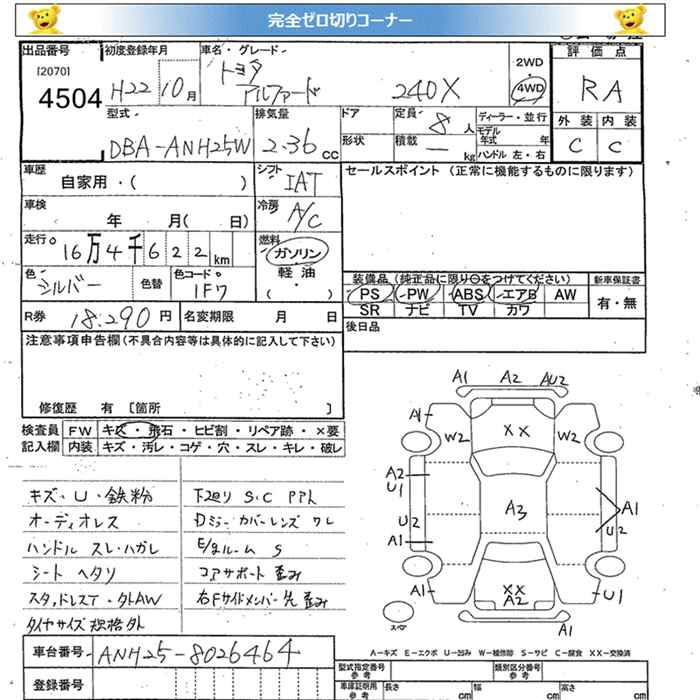 完全ゼロ切りコーナー
出品番号
[2070]
4504
初度登録年月
H22 10月
車名・グレード
トヨタ
アルファード 240X
2WD
4WD
評価点
RA
外装 内装
C C
型式
DBA-ANH25W
排気量
2.36cc
ドア
形状
定員 8人
積載 ー kg
ディーラー・並行
モデル年式 年
ハンドル 左・右
車歴
自家用・( )
シフト
IAT
セールスポイント (正常に機能するものに限ります)
車検
年 月( 日)
冷房
A/C
走行
16万4千622km
燃料
ガソリン
軽油
( ・ )
色
シルバー
色替
色コード
1F7
装備品(純正品に限り○をつけてください)
PS PW ABS エアB AW
SR ナビ TV カワ
新車保証書
有・無
R券 18.290円
名変期限 月 日
後日品
注意事項申告欄(不具合内容等は具体的に記入して下さい)
修復歴 有 [箇所 ]
検査員
記入欄
FW キズ・飛石・ヒビ割・リペア跡・×要
内装 キズ・汚レ・コゲ・穴・スレ・キレ・破レ
キズ・U・鉄粉
オーディオレス
ハンドル スレ・ハガレ
シート ヘタリ
スタッドレスT・外AW
タイヤサイズ規格外
下廻り S・C アト
Dミラーカバーレンズ ワレ
E/gルーム S
コアサポート 歪み
右Fサイドメンバー先 歪み
A1 A2 AU2
A1
W2 XX W2
A2
U1
A3
U2
A1
A1
U2
A1
XX
A2
U1
A1
スペア
A-キズ E-エクボ U-凹み W-補修跡 S-サビ C-腐食 XX-交換済
車台番号 ANH25-8026464
登録番号
型式指定番号
参考
類別区分番号
参考
車庫証明用
参考
長さ cm
幅 cm
高さ cm